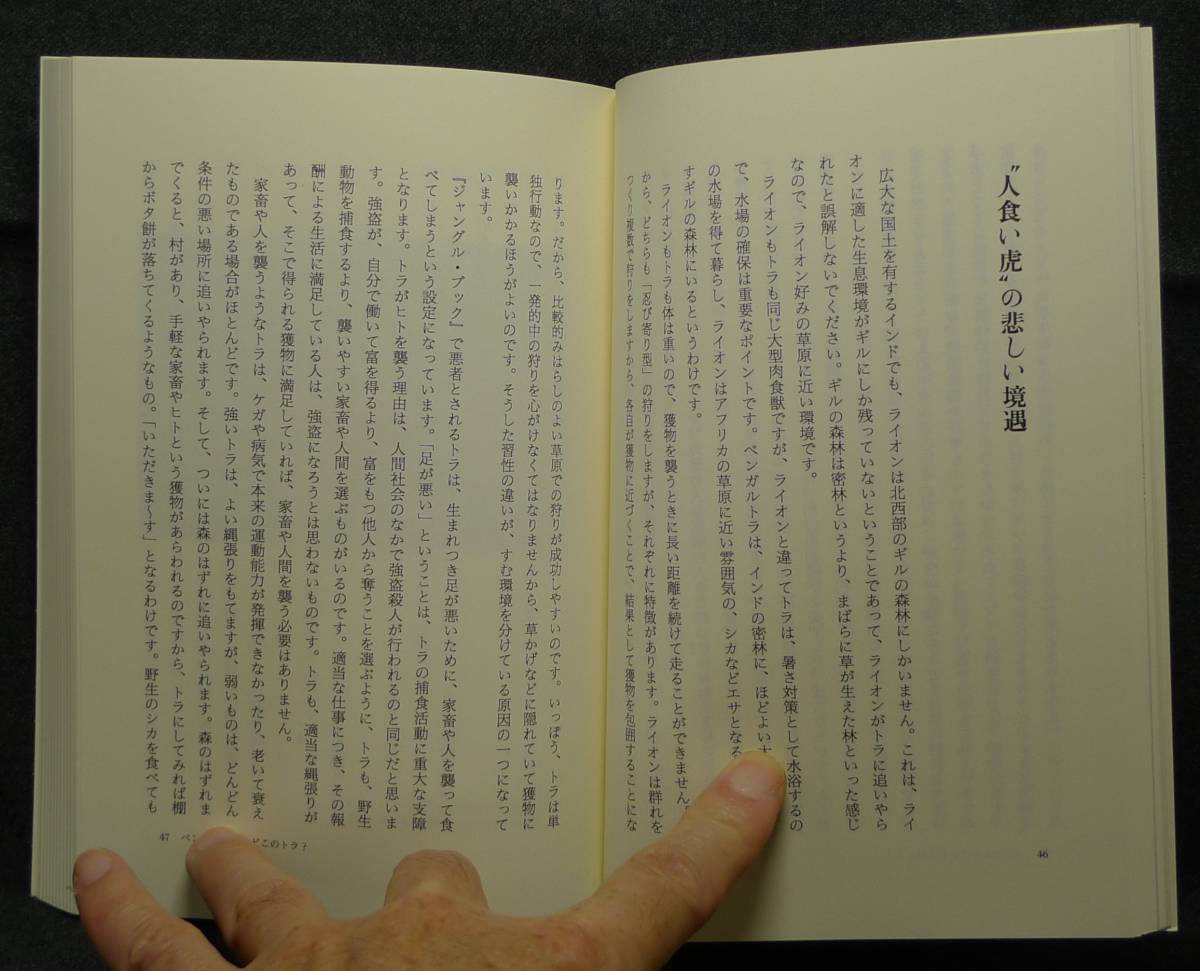 “人食い虎”の悲しい境遇
広大な国土を有するインドでも、ライオンは北西部のギルの森林にしかいません。これは、ライ
オンに適した生息環境がギルにしか残っていないということであって、ライオンがトラに追いやら
れたと誤解しないでください。ギルの森林は密林というより、まばらに草が生えた林といった感じ
なので、ライオン好みの草原に近い環境です。
ライオンもトラも同じ大型肉食獣ですが、ライオンと違ってトラは、暑さ対策として水浴するの
で、水場の確保は重要なポイントです。ベンガルトラは、インドの密林に、ほどよい
の水場を得て暮らし、ライオンはアフリカの草原に近い雰囲気の、シカなどエサとなる
すギルの森林にいるというわけです。
ライオンもトラも体は重いので、獲物を襲うときに長い距離を続けて走ることができません。
から、どちらも「忍び寄り型」の狩りをしますが、それぞれに特徴があります。ライオンは群れを
つくり複数で狩りをしますから、各自が獲物に近づくことで、結果として獲物を包囲することにな
46
ります。だから、比較的みはらしのよい草原での狩りが成功しやすいのです。いっぽう、トラは単
独行動なので、一発的中の狩りを心がけなくてはなりませんから、草かげなどに隠れていて獲物に
襲いかかるほうがよいのです。そうした習性の違いが、すむ環境を分けている原因の一つになって
います。
『ジャングル・ブック』で悪者とされるトラは、生まれつき足が悪いために、家畜や人を襲って食
べてしまうという設定になっています。「足が悪い」ということは、トラの捕食活動に重大な支障
となります。トラがヒトを襲う理由は、人間社会のなかで強盗殺人が行われるのと同じだと思いま
す。強盗が、自分で働いて富を得るより、富をもつ他人から奪うことを選ぶように、トラも、野生
動物を捕食するより、襲いやすい家畜や人間を選ぶものがいるのです。適当な仕事につき、その報
酬による生活に満足している人は、強盗になろうとは思わないものです。トラも、適当な縄張りが
あって、そこで得られる獲物に満足していれば、家畜や人間を襲う必要はありません。
家畜や人を襲うようなトラは、ケガや病気で本来の運動能力が発揮できなかったり、老いて衰え
たものである場合がほとんどです。強いトラは、よい縄張りをもてますが、弱いものは、どんどん
条件の悪い場所に追いやられます。そして、ついには森のはずれに追いやられます。森のはずれま
でくると、村があり、手軽な家畜やヒトという獲物があらわれるのですから、トラにしてみれば棚
からボタ餅が落ちてくるようなもの。「いただきま〜す」となるわけです。野生のシカを食べても
47 ベン どこのトラ？